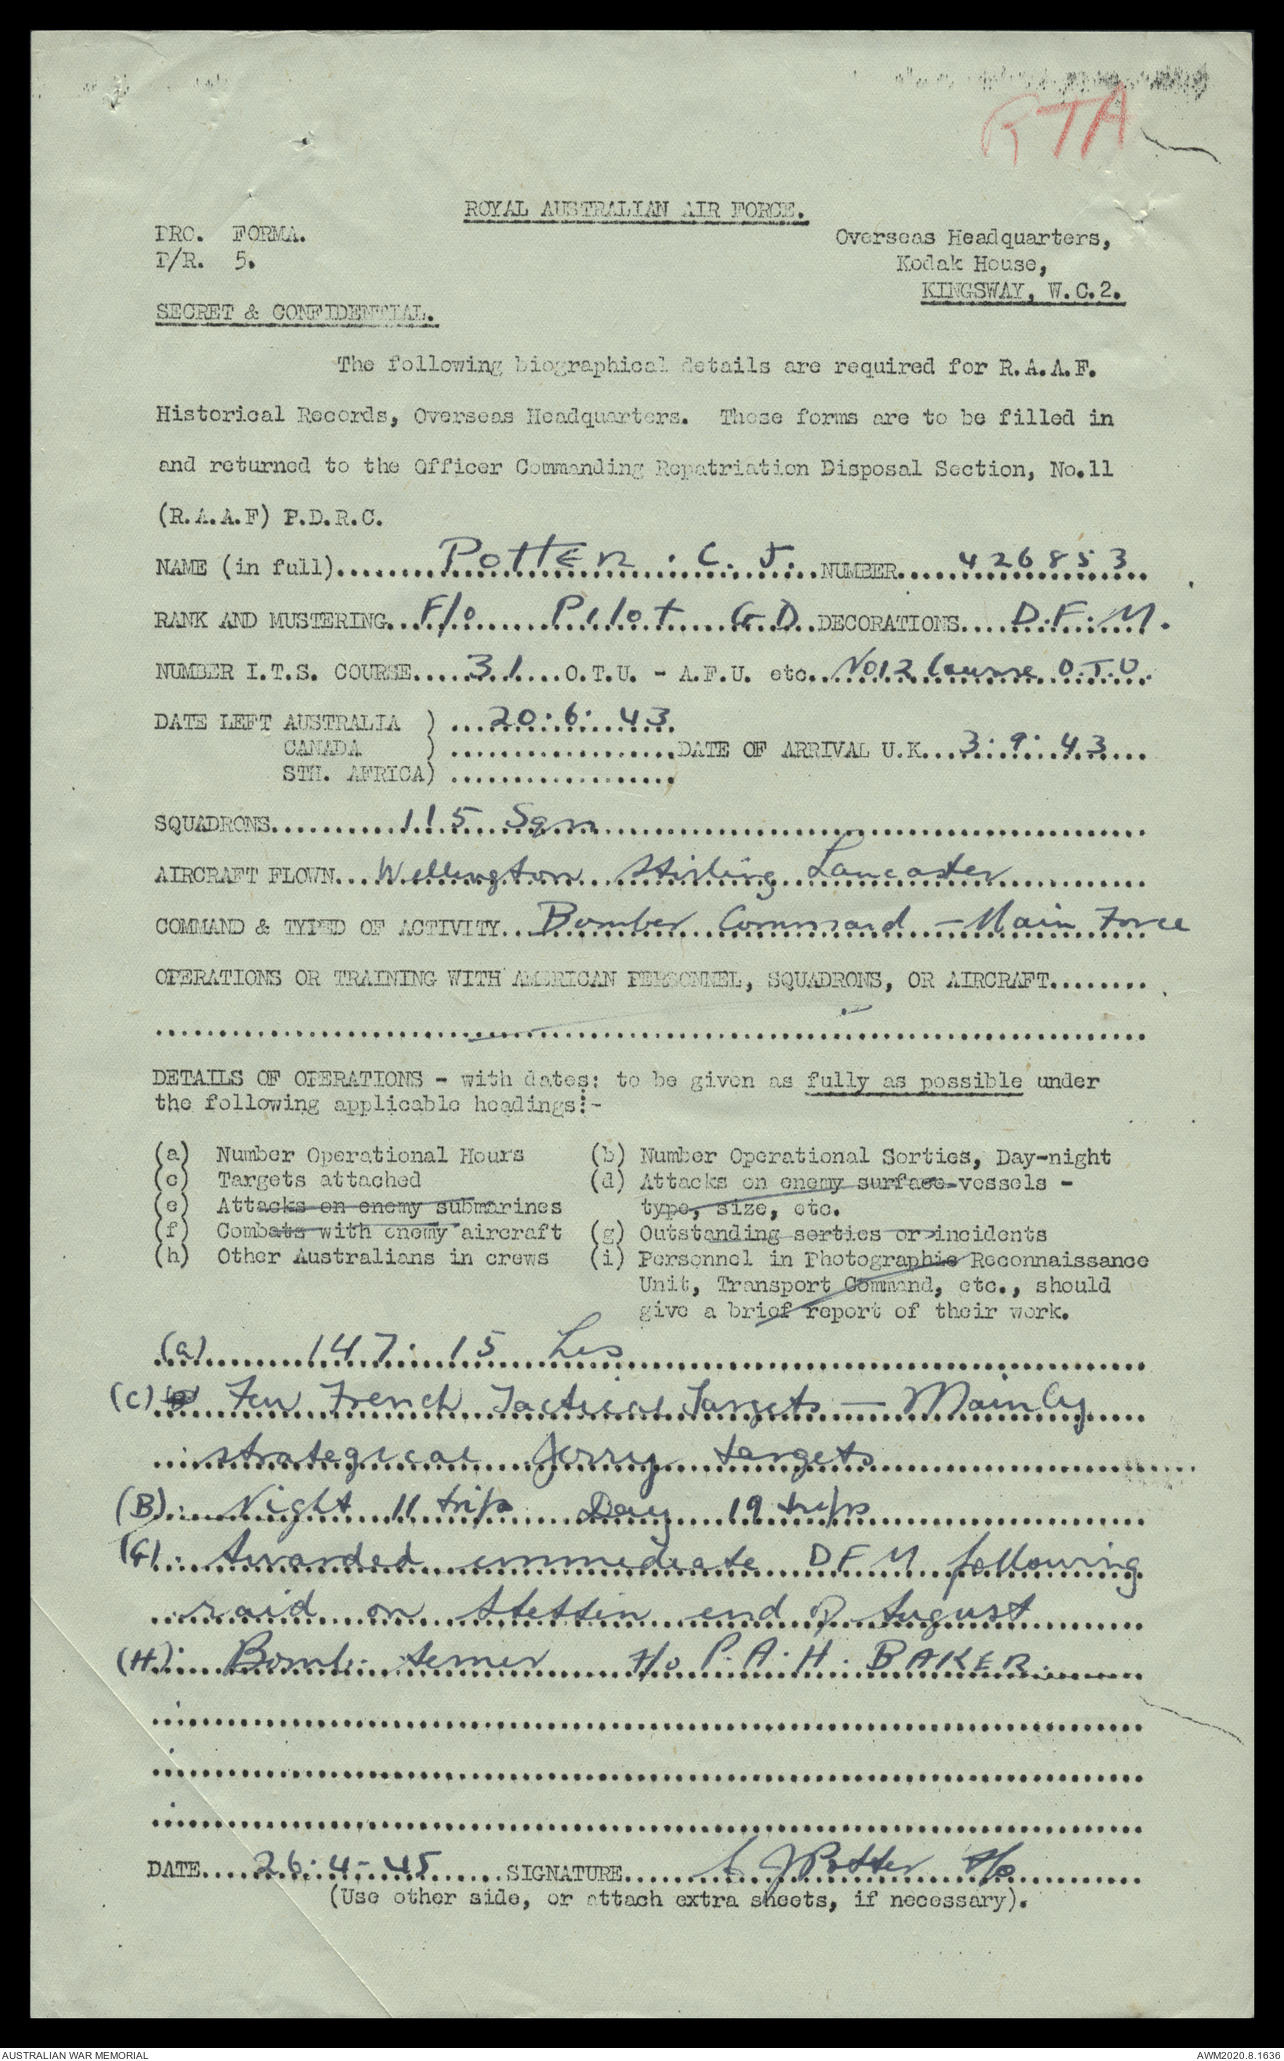 RTA
ROYAL AUSTRALIAN AIR FORCE.
PRO. FORMA.
P/R. 5.
Overseas Headquarters,
Kodak House,
KINGSWAY, W.C.2.
SECRET & CONFIDENTIAL.
The following biographical details are required for R.A.A.F.
Historical Records, Overseas Headquarters. These forms are to be filled in
and returned to the Officer Commanding Repatriation Disposal Section, No.11
(R.A.A.F) P.D.R.C.
NAME (in full)........Potter. C. J. NUMBER.....426853
RANK AND MUSTERING..F/o Pilot G D..DECORATIONS....D.F.M.
NUMBER I.T.S. COURSE....31....O.T.U. - A.F.U. etc..No12 Course O.T.U.
DATE LEFT AUSTRALIA ) ...20.6.43.
CANADA ) ..................DATE OF ARRIVAL U.K...3.9.43...
STH. AFRICA) ..................
SQUADRONS..........115 Sqn..........
AIRCRAFT FLOWN...Wellington Stirling Lancaster..........
COMMAND & TYPED OF ACTIVITY..Bomber Command - Main Force
OPERATIONS OR TRAINING WITH AMERICAN PERSONNEL, SQUADRONS, OR AIRCRAFT........
DETAILS OF OPERATIONS - with dates: to be given as fully as possible under
the following applicable headings:-
(a) Number Operational Hours (b) Number Operational Sorties, Day-night
(c) Targets attached (d) Attacks on enemy surface-vessels -
(e) Attacks on enemy submarines type, size, etc.
(f) Combats with enemy aircraft (g) Outstanding sorties or incidents
(h) Other Australians in crews (i) Personnel in Photographic Reconnaissance
Unit, Transport Command, etc., should
give a brief report of their work.
(a) 147.15 hrs
(C) Few French Tactical Targets - Mainly
strategical Jerry targets
(B). Night 11 trips Day 19 trips
(G). Awarded immediate DFM following
raid on Stettin end of August
(H). Bomb. Aimer F/o P.A.H. BAKER.
DATE....26.4-45......SIGNATURE.......C J Potter F/o
(Use other side, or attach extra sheets, if necessary).
AUSTRALIAN WAR MEMORIAL
AWM2020.8.1636